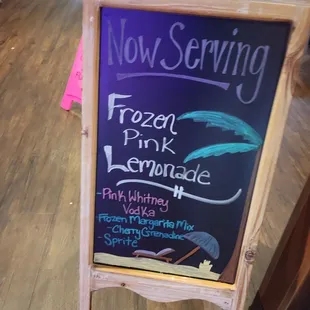 Now Serving
Frozen
Pink
Lemonade
-Pink Whitney
Vodka
-Frozen Margarita Mix
-Cherry Grenadine
-Sprite